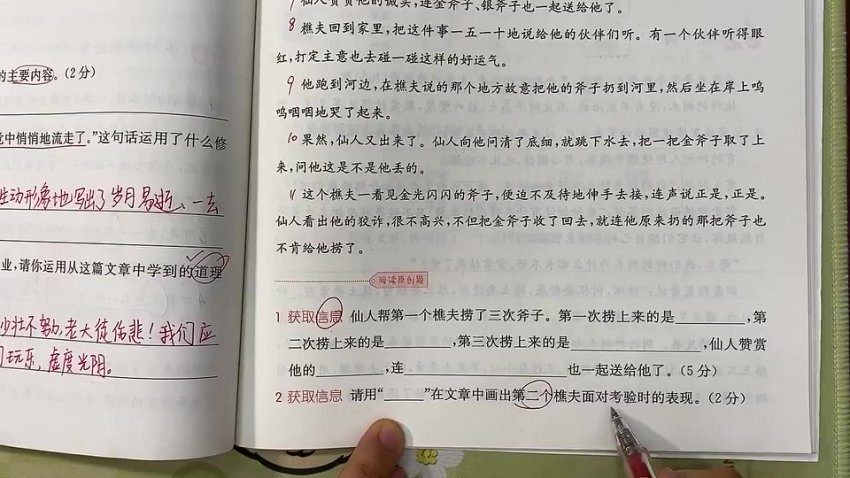 的主要内容。(2分)
中悄悄地流走了。”这句话运用了什么修
生动形象地写出了岁月易逝、一去
业,请你运用从这篇文章中学到的道理
少壮不努力,老大徒伤悲!我们应
玩乐,虚度光阴。
7 仙人赞赏他的诚实,连金斧子、银斧子也一起送给他了。
8 樵夫回到家里,把这件事一五一十地说给他的伙伴们听。有一个伙伴听得眼
红,打定主意也去碰一碰这样的好运气。
9 他跑到河边,在樵夫说的那个地方故意把他的斧子扔到河里,然后坐在岸上呜
呜咽咽地哭了起来。
10 果然,仙人又出来了。仙人向他问清了底细,就跳下水去,把一把金斧子取了上
来,问他这是不是他丢的。
11 这个樵夫一看见金光闪闪的斧子,便迫不及待地伸手去接,连声说正是,正是。
仙人看出他的狡诈,很不高兴,不但把金斧子收了回去,就连他原来扔的那把斧子也
不肯给他捞了。
阅读原创题
1 获取信息 仙人帮第一个樵夫捞了三次斧子。第一次捞上来的是________,第
二次捞上来的是________,第三次捞上来的是________,仙人赞赏
他的________,连________也一起送给他了。(5分)
2 获取信息 请用“____”在文章中画出第二个樵夫面对考验时的表现。(2分)